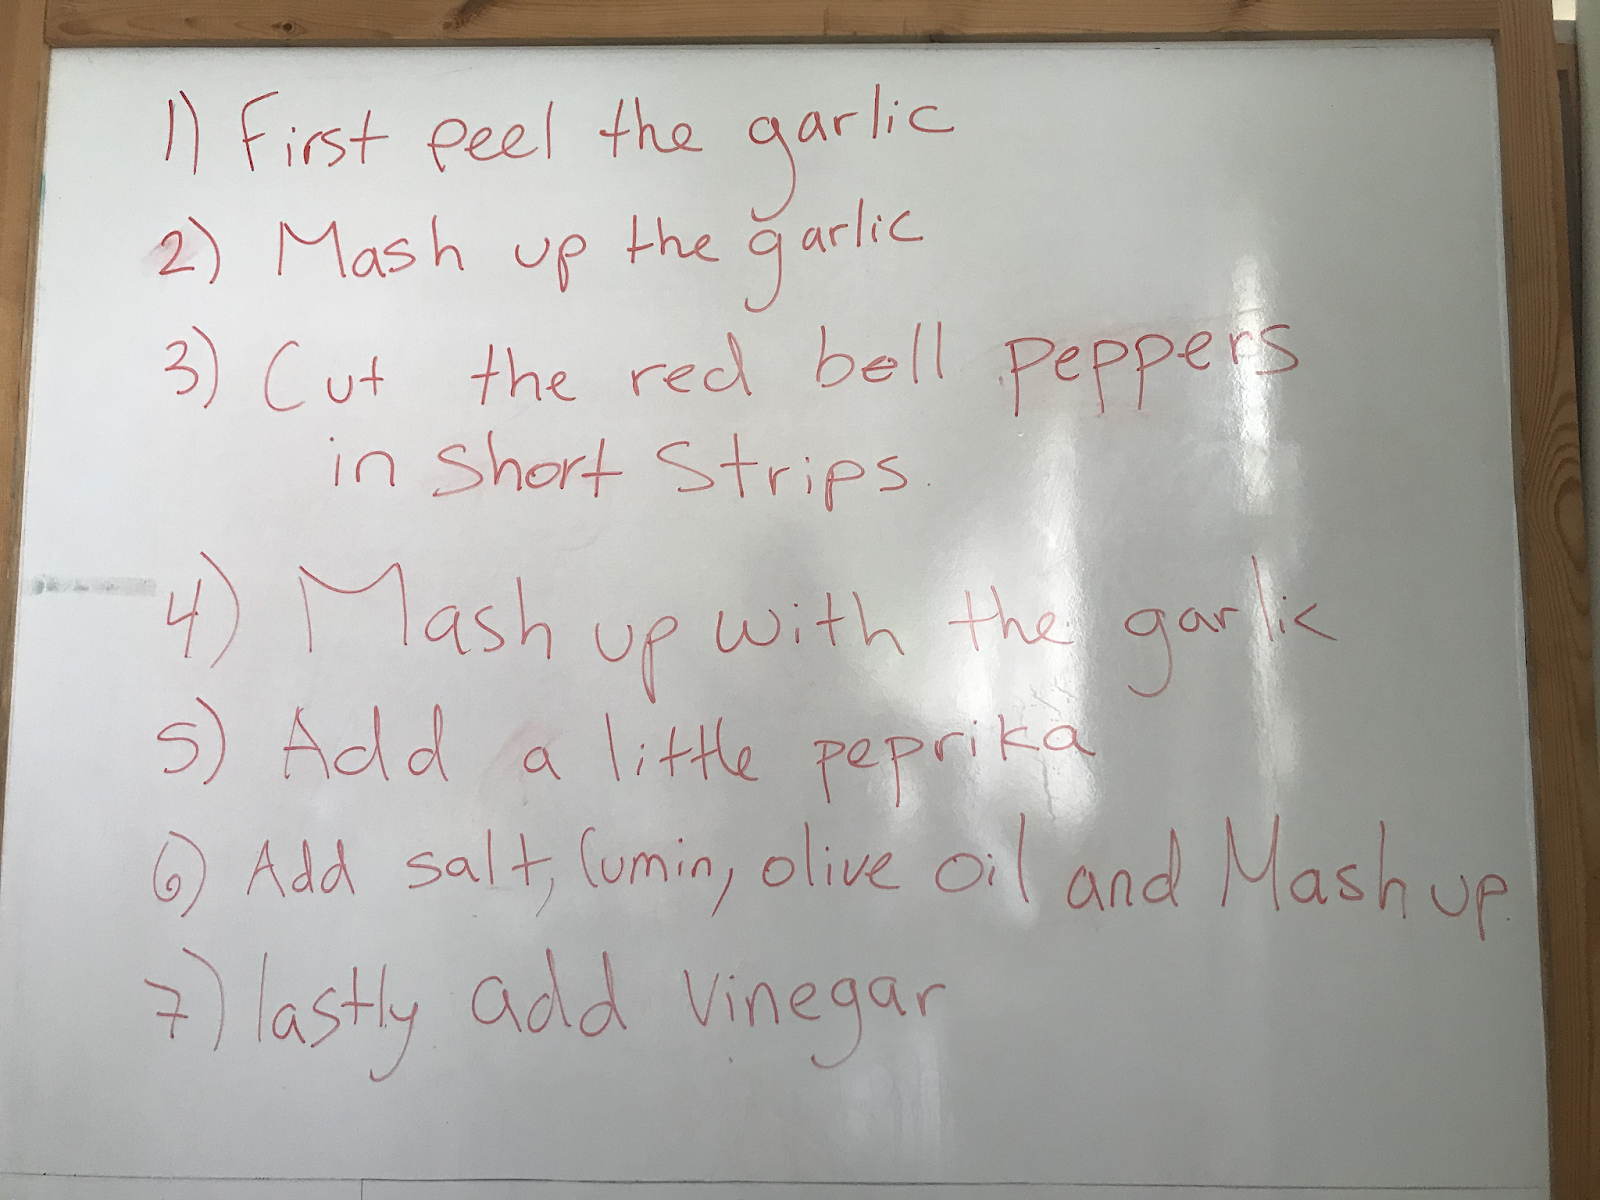 1) First peel the garlic
2) Mash up the garlic
3) Cut the red bell peppers
in short strips.
4) Mash up with the garlic
5) Add a little peprika
6) Add salt, Cumin, olive oil and Mash up.
7) lastly add vinegar